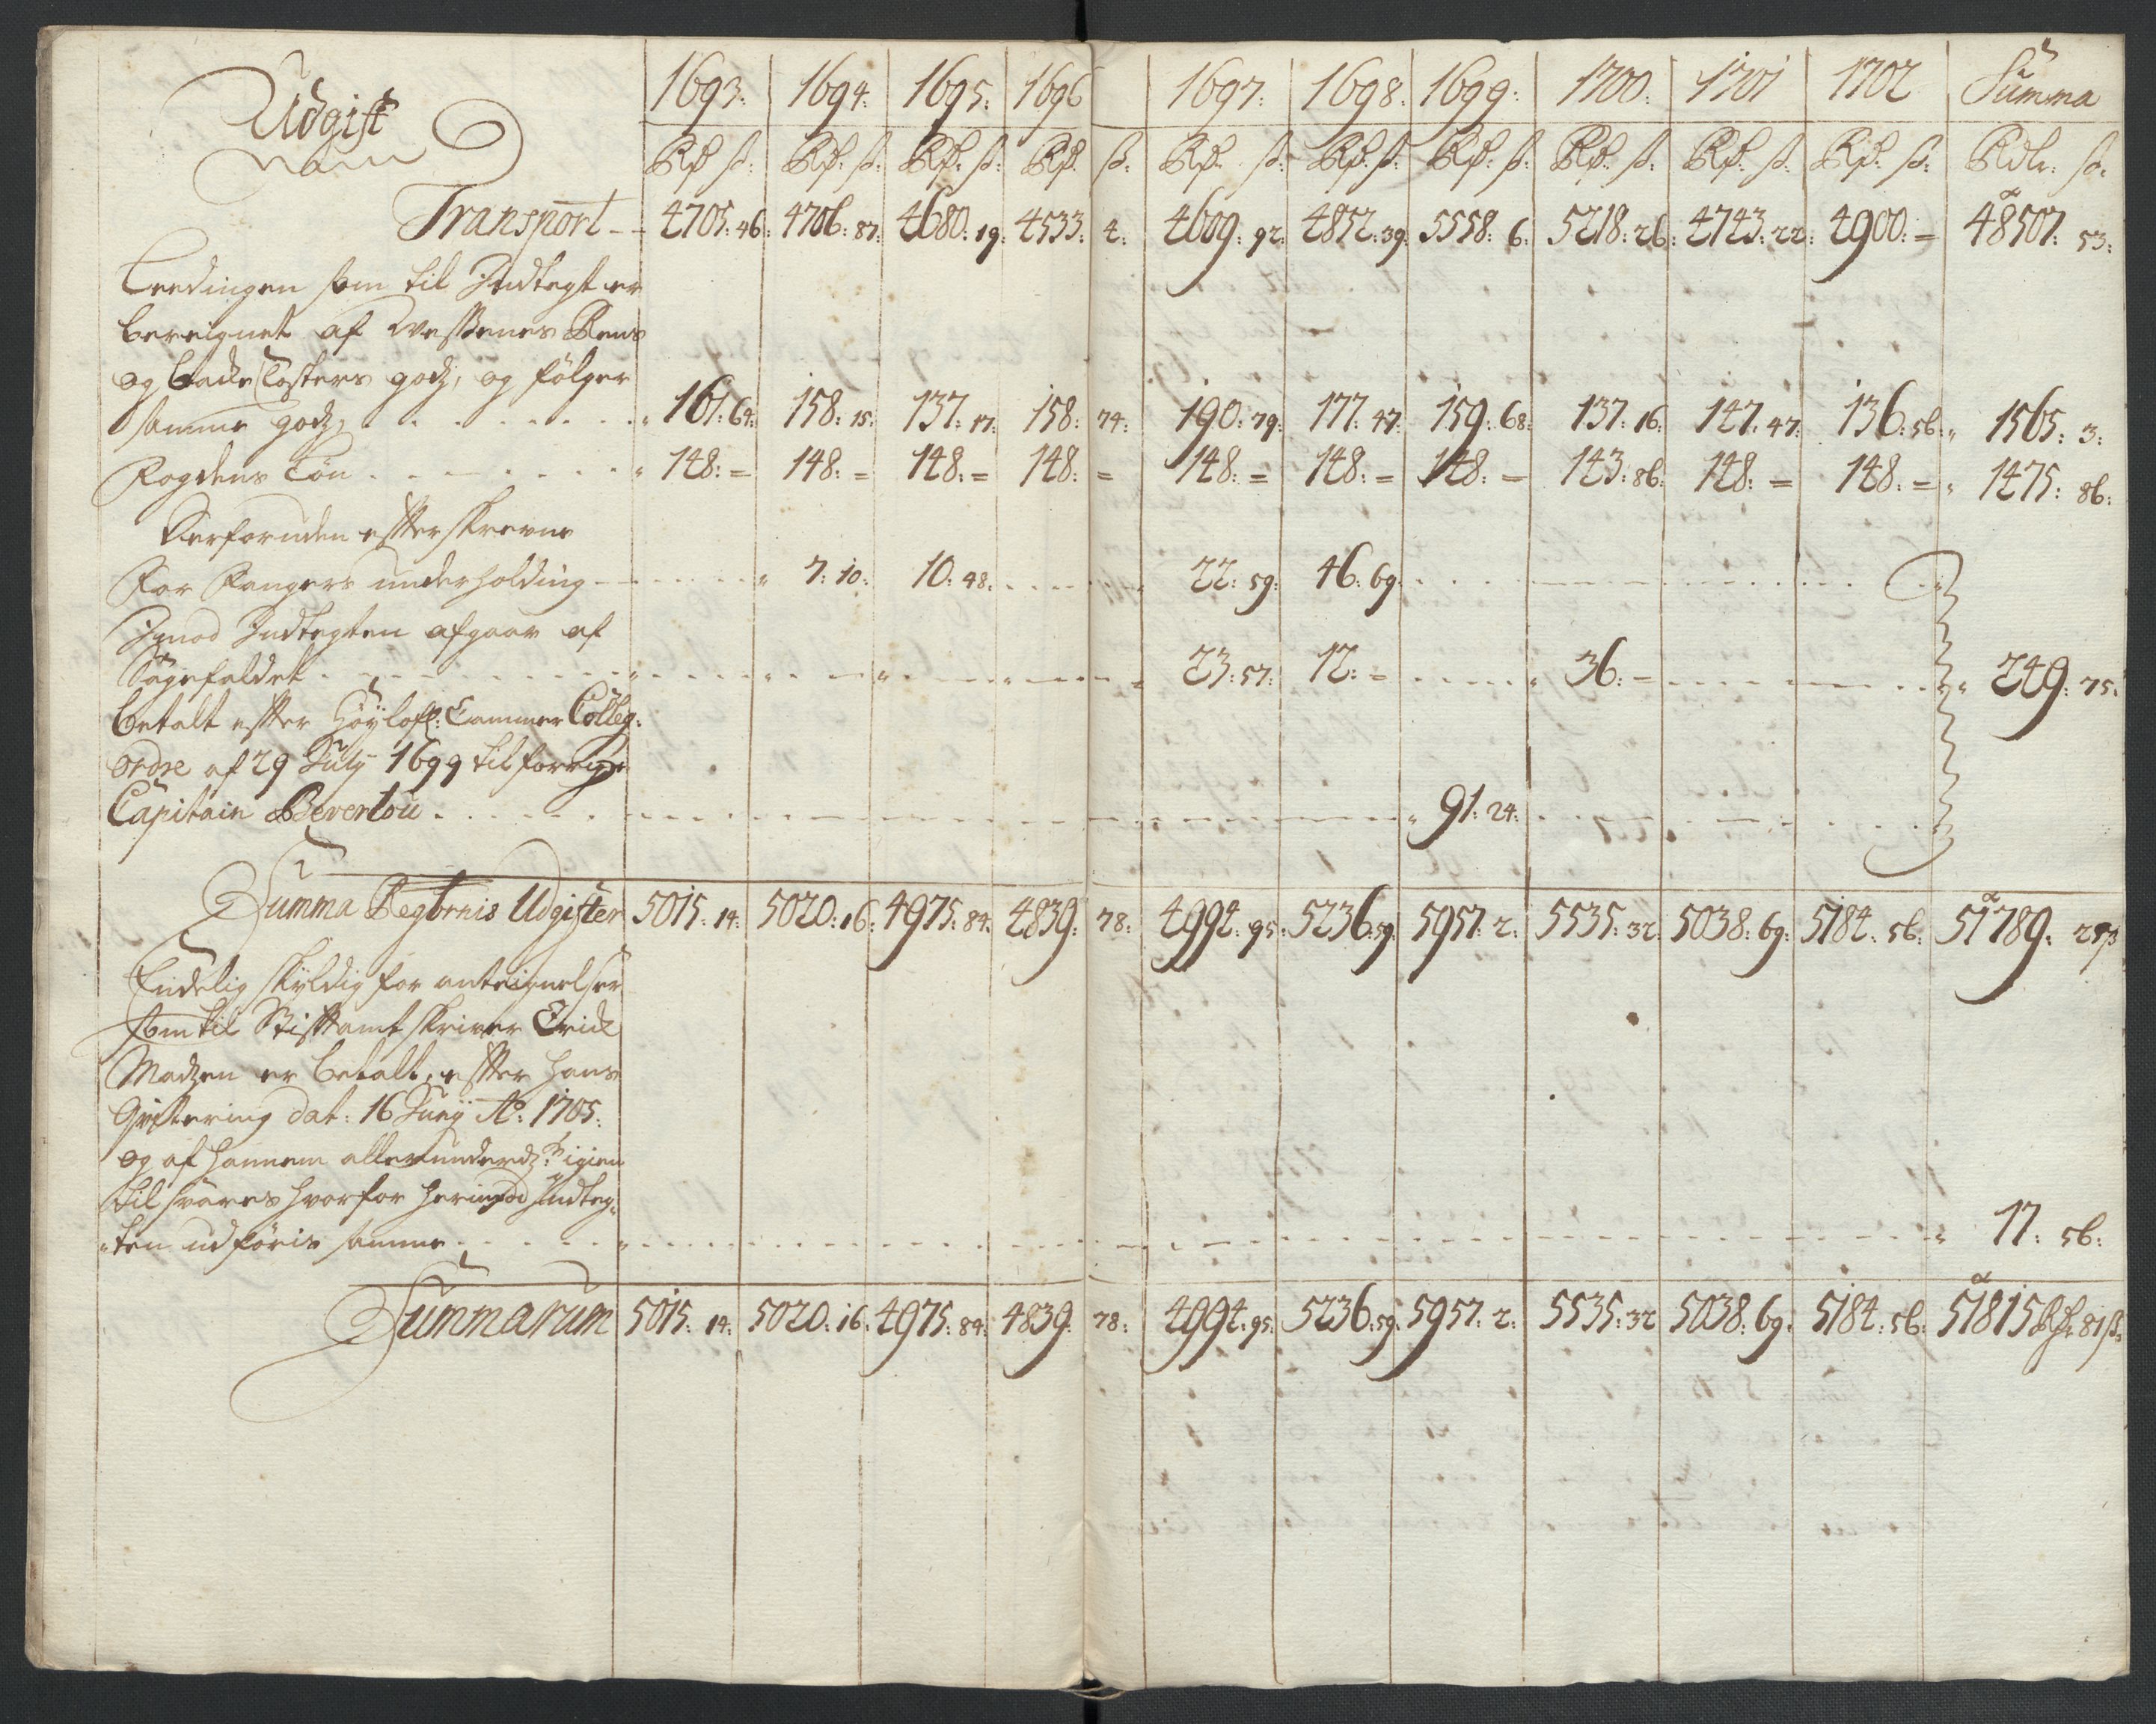 Udgift 1693: 1694: 1695: 1696 1697: 1698. 1699: 1700: 1701 1702 Summa
Rd ß: Rd. ß: Rd. ß: Rd. ß: Rd. ß: Rd. ß: Rd. ß: Rd. ß: Rd. ß: Rd. ß: Rdlr. ß.
Transport 4705: 46: 4706: 87: 4680: 19: 4533: 4: 4609: 92: 4852: 39: 5558: 6: 5218: 26: 4743: 22: 4900: = 48507: 53:
Leedingen som til Indtegt er
bereignet af Bens
og backe Closters godz, og følger
samme godz 161: 64: 158: 15: 137: 17: 158: 74: 190: 79: 177: 47: 159: 68: 137: 16: 147: 47: 136: 56: 1565: 3:
Fogdens Løn 148: = 148: = 148: = 148: = 148: = 148: = 148: = 143: 86: 148: = 148: = 1475: 86:
Derforuden efterskrevne
For Fangers underholding 7: 10: 10: 48: 22: 59: 46: 69:
Imod Indtegten afgaar af
Sagefaldet 23: 57: 12: = 36: = 249: 75:
betalt efter Høylofl: Cammer Colleg:
ordre af 29 July 1699 til forrige
Capitain Bevertou 91: 24:
Summa Udgifter 5015: 14: 5020: 16: 4975: 84: 4839: 78: 4994: 95: 5236: 59: 5957: 2: 5535: 32: 5038: 69: 5184: 56: 51789: 25ß
Endelig skyldig for anteignelser
som til Stiftamtskriver Erich
Madzen er betalt, efter hans
Qvittering dat: 16 Juny Ao: 1705:
og af hannem allerunderdst igien
til svares hvorfor herimod Indteg-
ten udføris samme 17: 56:
Summarum 5015: 14: 5020: 16: 4975: 84: 4839: 78: 4994: 95: 5236: 59: 5957: 2: 5535: 32 5038: 69: 5184: 56: 51815 Rdr 81ß